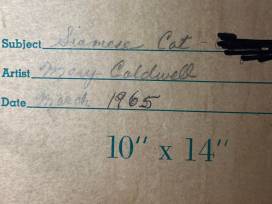 Subject Siamese Cat -
Artist Mary Caldwell
Date March 1965
10" x 14"